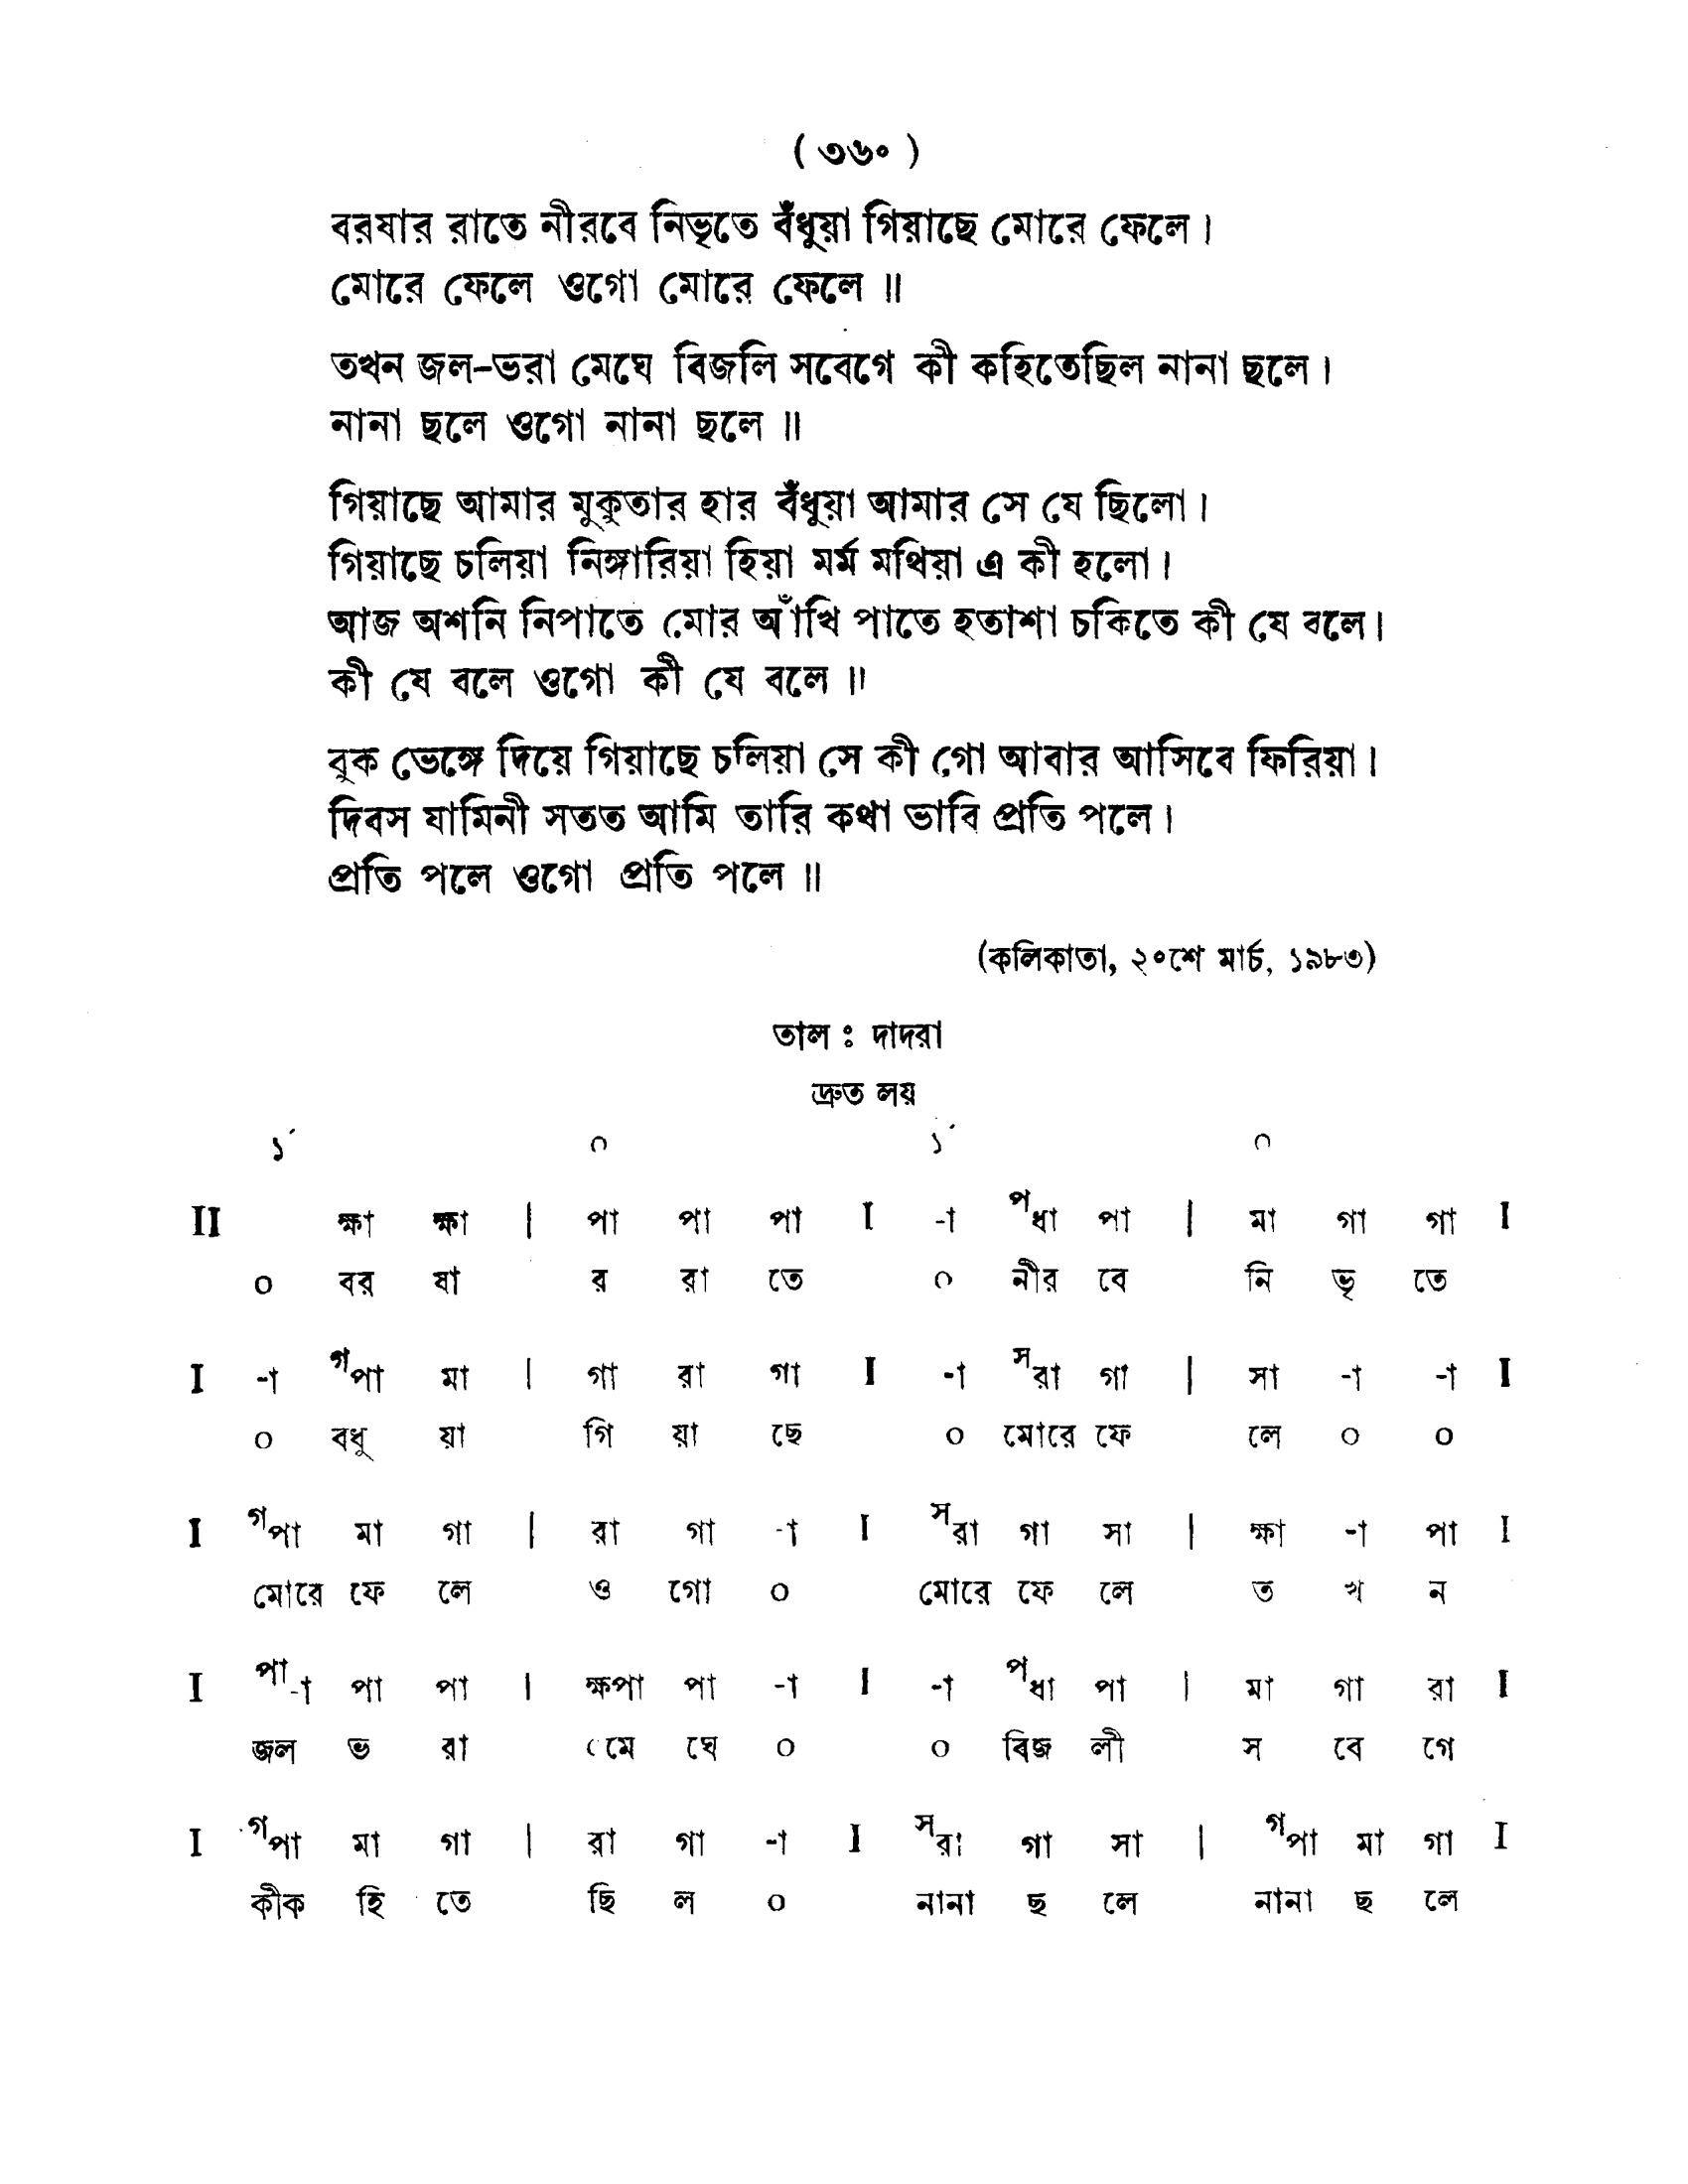 ( ৩৬০ )
বরষার রাতে নীরবে নিভৃতে বঁধুয়া গিয়াছে মোরে ফেলে।
মোরে ফেলে ওগো মোরে ফেলে ॥
তখন জল-ভরা মেঘে বিজলি সবেগে কী কহিতেছিল নানা ছলে।
নানা ছলে ওগো নানা ছলে ॥
গিয়াছে আমার মুকুতার হার বঁধুয়া আমার সে যে ছিলো।
গিয়াছে চলিয়া নিঙ্গারিয়া হিয়া মর্ম মথিয়া এ কী হলো।
আজ অশনি নিপাতে মোর আঁখি পাতে হতাশা চকিতে কী যে বলে।
কী যে বলে ওগো কী যে বলে ॥
বুক ভেঙ্গে দিয়ে গিয়াছে চলিয়া সে কী গো আবার আসিবে ফিরিয়া।
দিবস যামিনী সতত আমি তারি কথা ভাবি প্রতি পলে।
প্রতি পলে ওগো প্রতি পলে ॥
(কলিকাতা, ২০শে মার্চ, ১৯৮৩)
তাল ঃ দাদরা
দ্রুত লয়
১´ ০ ১´ ০
II ক্ষা ক্ষা | পা পা পা I -া পধা পা | মা গা গা I
০ বর ষা র রা তে ০ নীর বে নি ভৃ তে
I -া গপা মা | গা রা গা I -া সরা গা | সা -া -া I
০ বধু য়া গি য়া ছে ০ মোরে ফে লে ০ ০
I গপা মা গা | রা গা -া I সরা গা সা | ক্ষা -া পা I
মোরে ফে লে ও গো ০ মোরে ফে লে ত খ ন
I পা-া পা পা | ক্ষপা পা -া I -া পধা পা | মা গা রা I
জল ভ রা মে ঘে ০ ০ বিজ লী স বে গে
I গপা মা গা | রা গা -া I সরা গা সা | গপা মা গা I
কীক হি তে ছি ল ০ নানা ছ লে নানা ছ লে